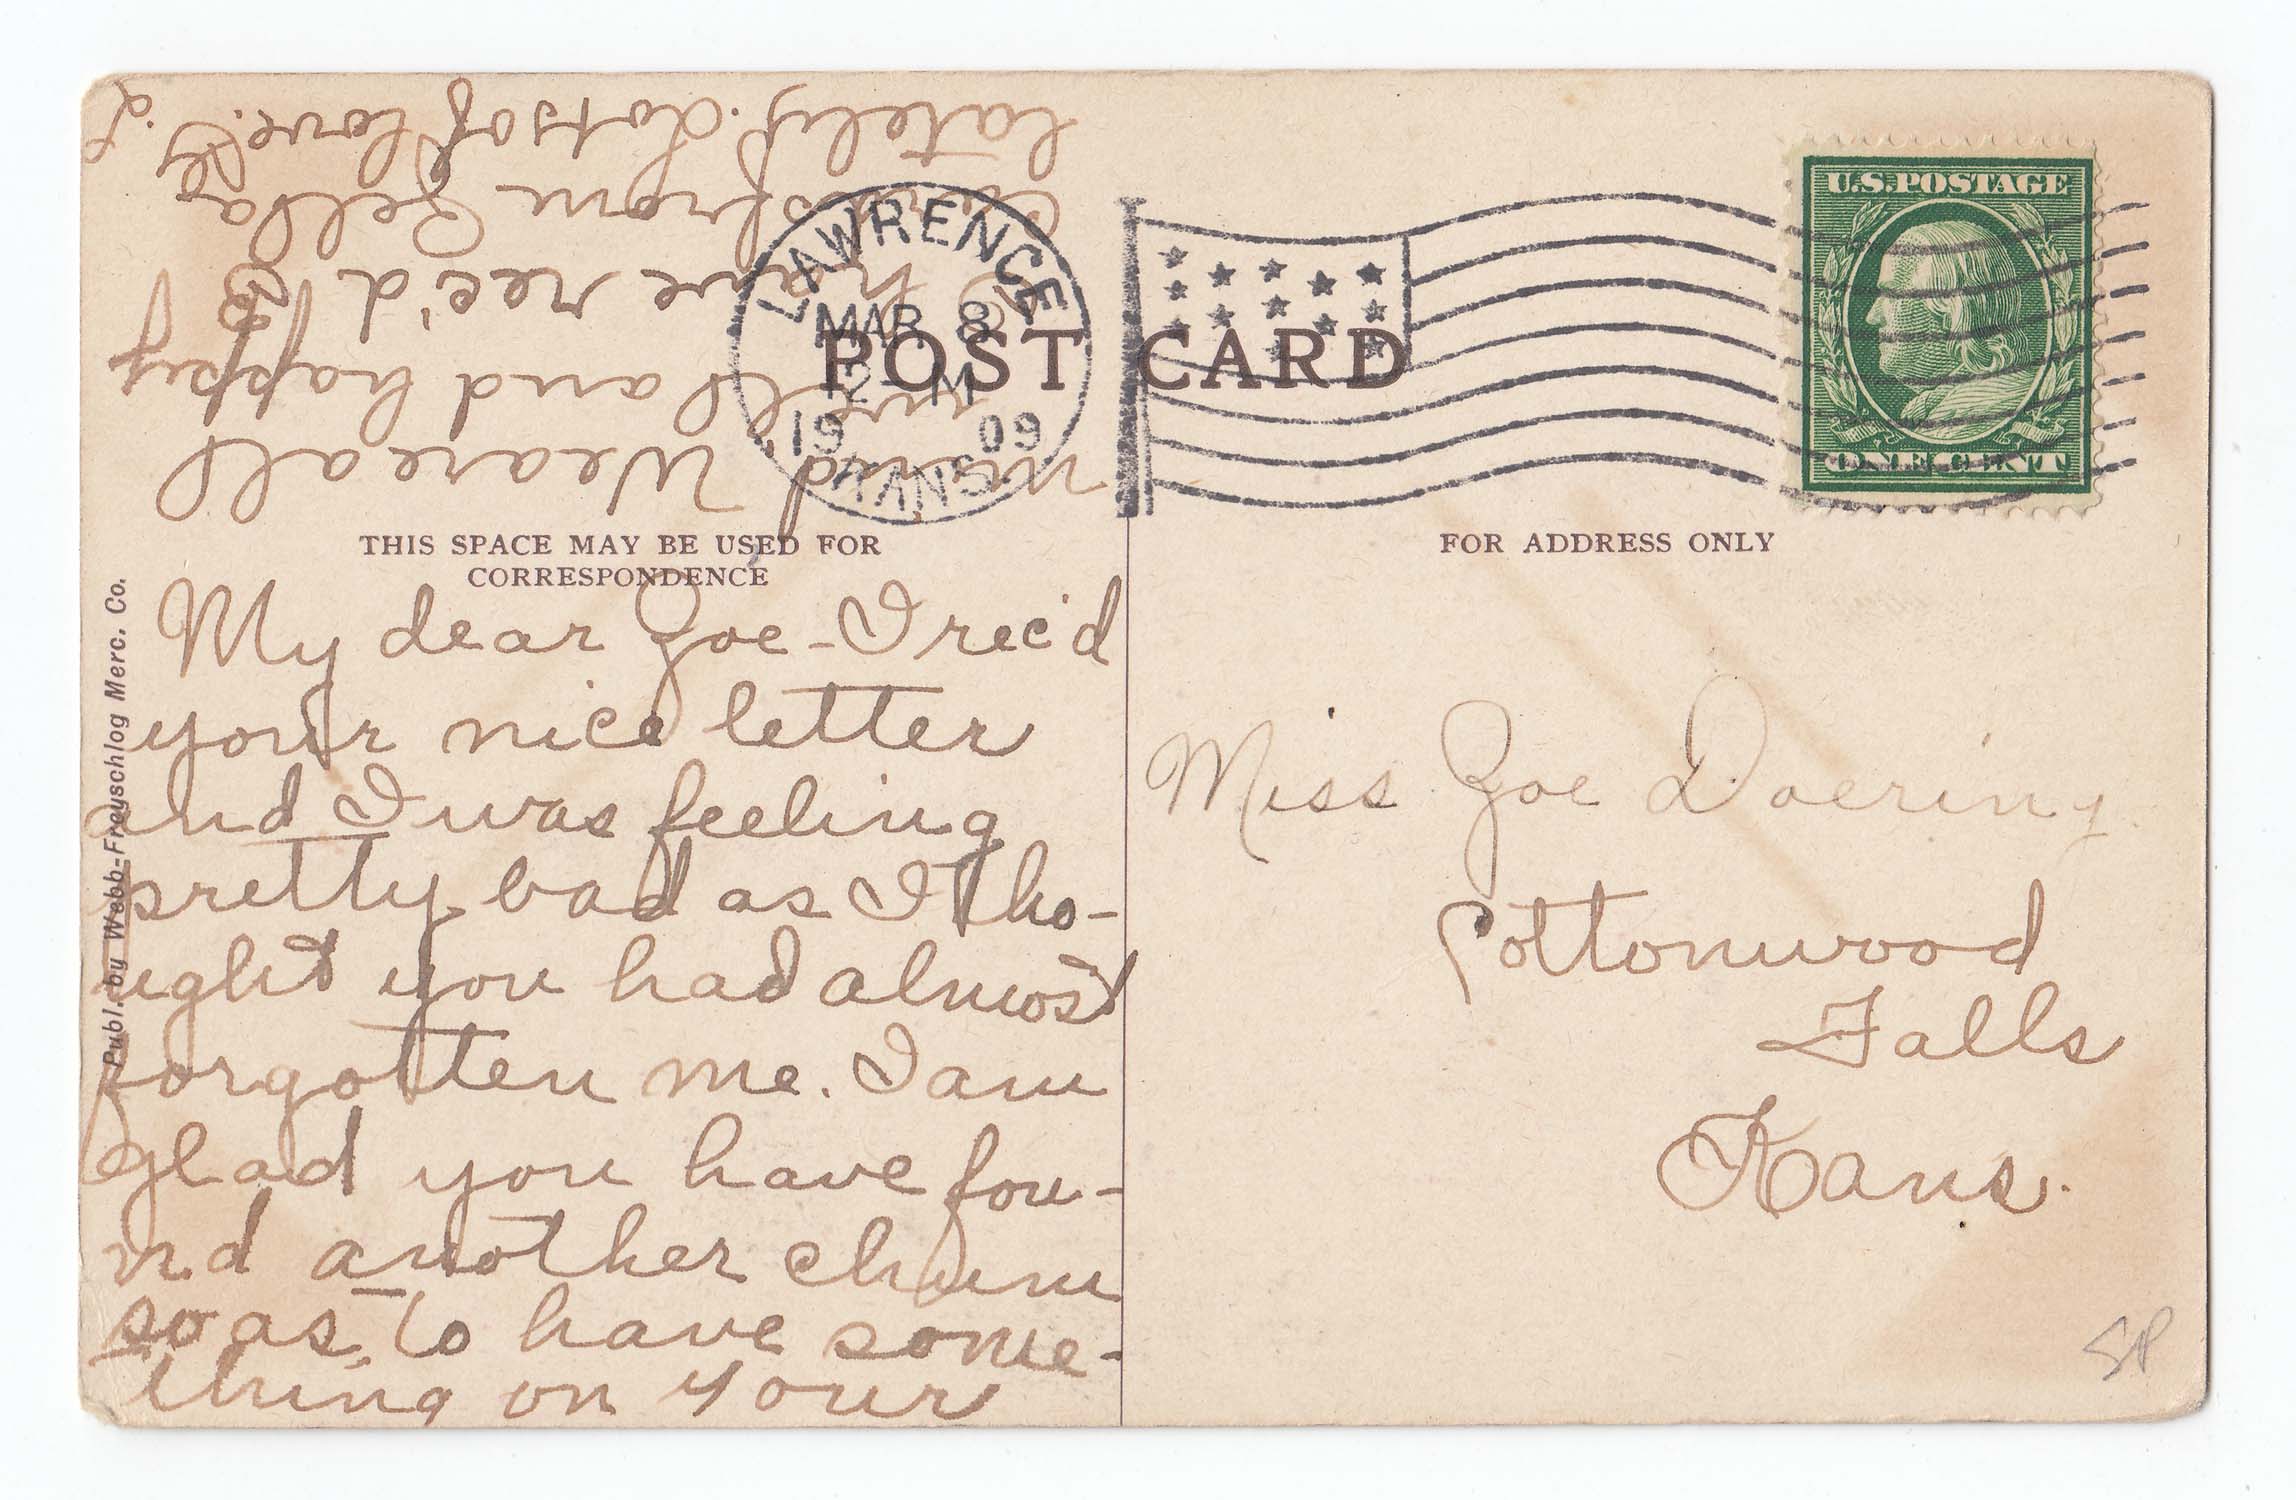 U.S. POSTAGE
ONE CENT
LAWRENCE
MAR 8
M
1909
KANS.
POST CARD
THIS SPACE MAY BE USED FOR
CORRESPONDENCE
FOR ADDRESS ONLY
Publ. by Webb-Freyschlog Merc. Co.
My dear Zoe - I rec'd
your nice letter
and I was feeling
pretty bad as I tho-
ught you had almost
forgotten me. I am
glad you have fou-
nd another chum
so as to have some-
thing on your
mind We are all
well and happy
I have rec'd 3
cards from
lately. Lots of love.
L.
Miss Zoe Doering
Cottonwood
Falls
Kans.
SP